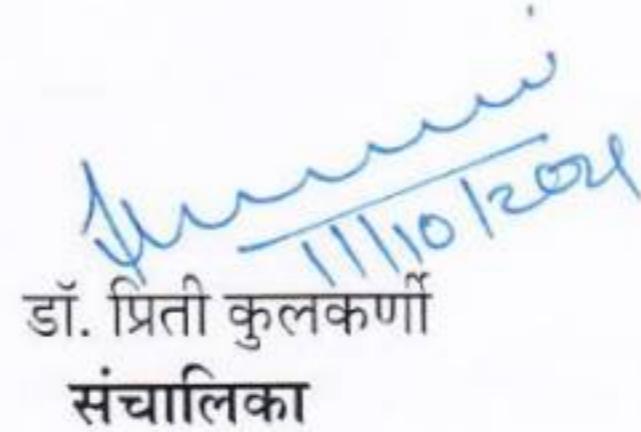 11/10/2021
डॉ. प्रिती कुलकर्णी
संचालिका